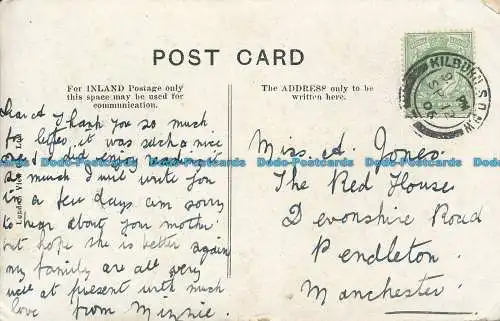 POST CARD
For INLAND Postage only
this space may be used for
communication.
The ADDRESS only to be
written here.
Dear A I thank you so much
for letter, it was such a nice
one I did enjoy reading it
so much I will write you
in a few days am sorry
to hear about you mother
but hope she is better again
my family are all very
well at present with much
love from Minnie.
Miss. A. Jones.
The Red House
Devonshire Road
Pendleton.
Manchester.
KILBURN S.O. N.W
London View Co Ltd
Dodo-Postcards Dodo-Postcards Dodo-Postcards Dodo-Postcards Dodo-Postcards